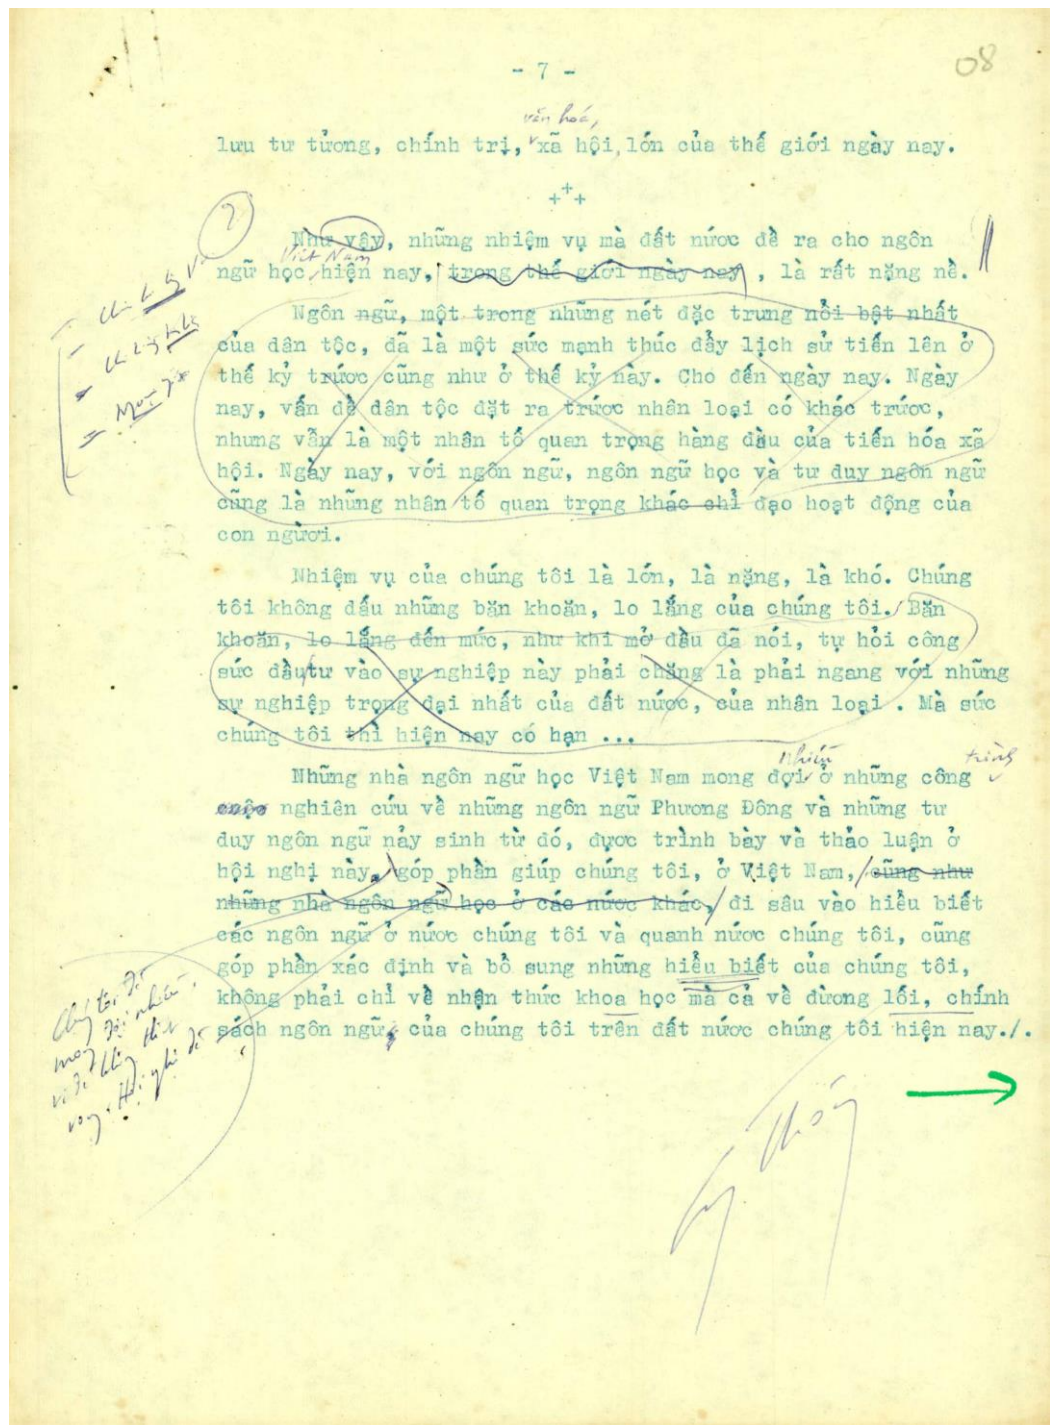 08
- 7 -
văn hoá,
lưu tư tưởng, chính trị, xã hội, lớn của thế giới ngày nay.
+++
2
Như vậy, những nhiệm vụ mà đất nước đề ra cho ngôn
Việt Nam
ngữ học hiện nay, trong thế giới ngày nay, là rất nặng nề.
Ngôn ngữ, một trong những nét đặc trưng nổi bật nhất
của dân tộc, đã là một sức mạnh thúc đẩy lịch sử tiến lên ở
thế kỷ trước cũng như ở thế kỷ này. Cho đến ngày nay. Ngày
nay, vấn đề dân tộc đặt ra trước nhân loại có khác trước,
nhưng vẫn là một nhân tố quan trọng hàng đầu của tiến hóa xã
hội. Ngày nay, với ngôn ngữ, ngôn ngữ học và tư duy ngôn ngữ
cũng là những nhân tố quan trọng khác chỉ đạo hoạt động của
con người.
Nhiệm vụ của chúng tôi là lớn, là nặng, là khó. Chúng
tôi không dấu những băn khoăn, lo lắng của chúng tôi. Băn
khoăn, lo lắng đến mức, như khi mở đầu đã nói, tự hỏi công
sức đầu tư vào sự nghiệp này phải chăng là phải ngang với những
sự nghiệp trọng đại nhất của đất nước, của nhân loại . Mà sức
chúng tôi thì hiện nay có hạn ...
nhiều trình
Những nhà ngôn ngữ học Việt Nam mong đợi ở những công
cuộc nghiên cứu về những ngôn ngữ Phương Đông và những tư
duy ngôn ngữ nảy sinh từ đó, được trình bày và thảo luận ở
hội nghị này, góp phần giúp chúng tôi, ở Việt Nam, cũng như
những nhà ngôn ngữ học ở các nước khác, đi sâu vào hiểu biết
các ngôn ngữ ở nước chúng tôi và quanh nước chúng tôi, cũng
góp phần xác định và bổ sung những hiểu biết của chúng tôi,
không phải chỉ về nhận thức khoa học mà cả về đường lối, chính
sách ngôn ngữ, của chúng tôi trên đất nước chúng tôi hiện nay./.
Chúng tôi đã
mong đợi nhiều,
và đã không thất
vọng. Hội nghị đã